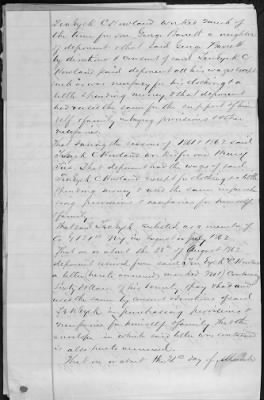 Tenbyck C Rowland worked much of
the time for one George Barrett a neighbor
of deponent & that said George Barrett
by direction & consent of said Tenbyck C
Rowland paid deponent all his wages except
such as was necessary for his clothing & a
little spending money & that deponent
had & used the same for the support of him
self & family in buying provisions & other
necessaries.
That during the season of 1861 & 1862 said
C Rowland worked for one Henry
That deponent had the wages of said
Tenbyck C Rowland except for clothing & a little
spending money & used the same in purchas
ing provisions & necessaries for himself
& family
That said Tenbyck enlisted as a member of
Co 127th Reg in August 1862
That on or about the 28th of August 1862
deponent received from said Tenbyck C Rowland
a letter hereto annexed marked No 1 Containing
Sixty dollars of his bounty & pay & had and
used the same by consent & directions of said
in purchasing provisions &
necessaries for himself & family That the
envelope in which said letter was contained
is also hereto annexed
That on or about the 31st day of